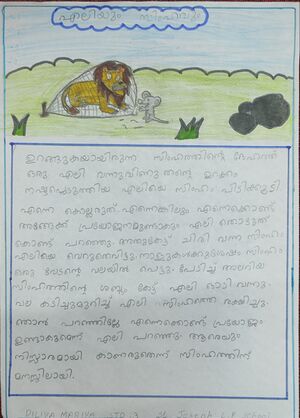 എലിയും സിംഹവും
ഉറങ്ങുകയായിരുന്ന സിംഹത്തിന്റെ ദേഹത്ത്
ഒരു എലി വന്നുവീണു തന്റെ ഉറക്കം
നഷ്ടപ്പെടുത്തിയ എലിയെ സിംഹം പിടികൂടി
എന്നെ കൊല്ലരുത് എന്നെങ്കിലും എന്നെക്കൊണ്ട്
അങ്ങേക്ക് പ്രയോജനമുണ്ടാകും എലി തൊഴുത്
കൊണ്ട് പറഞ്ഞു. ചിരി വന്ന സിംഹം
എലിയെ വെറുതെവിട്ടു. നാളുകൾക്കുശേഷം സിംഹം
ഒരു വേടന്റെ വലയിൽ പെട്ടു. പേടിച്ച്
സിംഹത്തിന്റെ ശബ്ദം കേട്ട് എലി ഓടി വന്നു.
വല കടിച്ചുമുറിച്ച് എലി സിംഹത്തെ രക്ഷിച്ചു.
ഞാൻ പറഞ്ഞില്ലേ എന്നെക്കൊണ്ട് പ്രയോജനം
ഉണ്ടാകുമെന്ന് എലി പറഞ്ഞു. ആരെയും
നിസ്സാരമായി കാണരുതെന്ന് സിംഹത്തിന്
മനസ്സിലായി.
DILIYA MARIYA STD 3 St Joseph